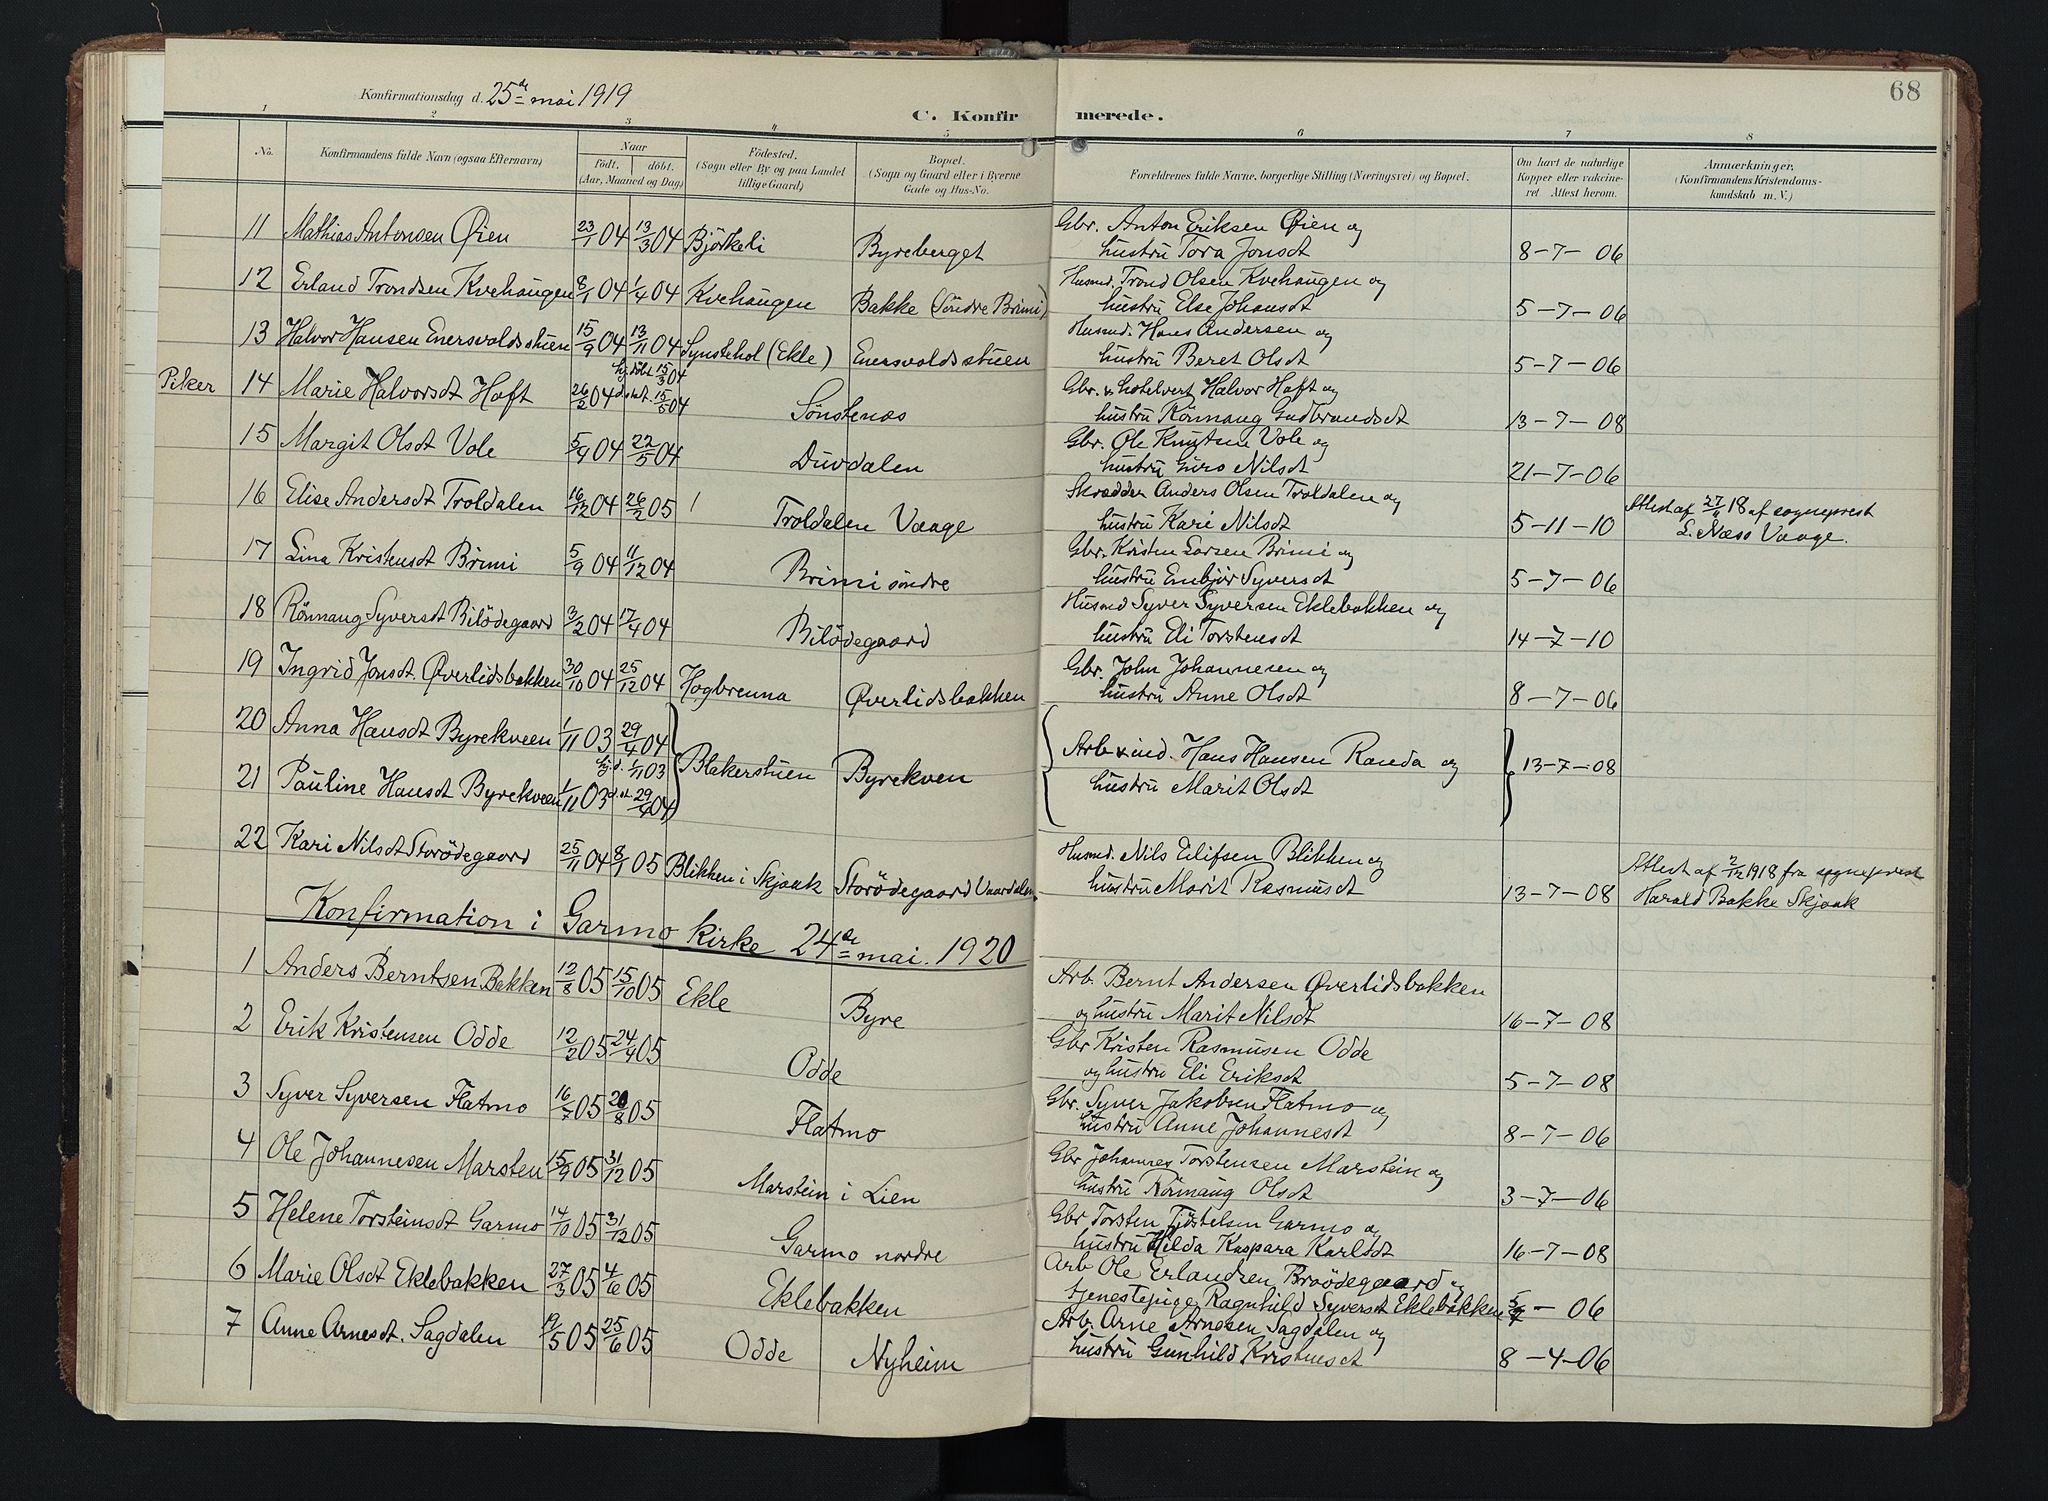 68
Konfirmationsdag d. 25de mai 1919
C. Konfirmerede.
1 2 3 4 5 6 7 8
No. Konfirmandens fulde Navn (ogsaa Efternavn) Naar födt. döbt. (Aar, Maaned og Dag) Födested. (Sogn eller By og paa Landet tillige Gaard) Bopæl. (Sogn og Gaard eller i Byerne Gade og Hus-No. Forældrenes fulde Navne, borgerlige Stilling (Næringsvei) og Bopæl. Om havt de naturlige Kopper eller vakcineret Attest herom. Anmærkninger. (Konfirmandens Kristendomskundskab m. V.)
11 Mathias Antonsen Øien 23/1 04 13/3 04 Björkeli Byreberget Gbr. Anton Eriksen Øien og
hustru Tora Jonsdt 8-7-06
12 Erland Trondsen Kvehaugen 8/1 04 1/4 04 Kvehaugen Bakke (Söndre Brimi) Husmd. Trond Olsen Kvehaugen og
hustru Else Johansdt 5-7-06
13 Halvor Hansen Enersvoldsstuen 15/9 04 13/11 04 Synstehol (Ekle) Enersvoldsstuen Husmd. Hans Andersen og
hustru Beret Olsdt 5-7-06
Piker 14 Marie Halvorsdt Hoft 26/2 04 hj. döbt 15/3 04 d. st. 15/5 04 Sönstenæs Gbr. & hotelvert Halvor Hoft og
hustru Rönnaug Gudbrandsdt 13-7-08
15 Margit Olsdt Vole 5/4 04 22/5 04 Duvdalen Gbr. Ole Knutsen Vole og
hustru Guro Nilsdt 21-7-06
16 Elise Andersdt Troldalen 16/12 04 26/2 05 Troldalen Vaage Skrædder Anders Olsen Troldalen og
hustru Kari Nilsdt 5-11-10 Attest af 27/11 18 af sogneprest
L. Næss Vaage.
17 Lina Kristensdt Brimi 5/9 04 11/12 04 Brimi söndre Gbr. Kristen Larsen Brimi og
hustru Embjör Syversdt 5-7-06
18 Rönnaug Syversdt Bilödegaard 3/2 04 17/4 04 Bilödegaard Husmd Syver Syversen Eklebakken og
hustru Eli Torstensdt 14-7-10
19 Ingrid Jonsdt Øverlidsbakken 30/10 04 25/12 04 Hogbrenna Øverlidsbakken Gbr. John Johannesen og
hustru Anne Olsdt 8-7-06
20 Anna Hansdt Byrekveen 1/11 03 29/4 04
21 Pauline Hansdt Byrekveen 1/11 03 hj.d. 1/11 03 d. st. 29/4 04 Blakerstuen Byrekven Arb & ind. Hans Hansen Randa og
hustru Marit Olsdt 13-7-08
22 Kari Nilsdt Storödegaard 25/11 04 8/1 05 Blikken i Skjaak Storödegaard Vaardalen Husmd. Nils Eilifsen Blikken og
hustru Marit Rasmusdt 13-7-08 Attest af 2/12 1918 fra sogneprest
Harald Bakke Skjaak
Konfirmation i Garmo kirke 24de mai. 1920
1 Anders Berntsen Bakken 12/8 05 15/10 05 Ekle Byre Arb. Bernt Andersen Øverlidsbakken
og hustru Marit Nilsdt 16-7-08
2 Erik Kristensen Odde 12/2 05 24/4 05 Odde Gbr Kristen Rasmusen Odde
og hustru Eli Eriksdt 5-7-08
3 Syver Syversen Flatmo 16/7 05 20/8 05 Flatmo Gbr. Syver Jakobsen Flatmo og
hustru Anne Johannesdt 8-7-06
4 Ole Johannesen Marsten 15/9 05 31/12 05 Marstein i Lien Gbr Johannes Torstensen Marstein og
hustru Rönnaug Olsdt 3-7-06
5 Helene Torsteinsdt Garmo 14/10 05 31/12 05 Garmo nordre Gbr Torsten Tjöstelsen Garmo og
hustru Hilda Kaspara Karlsdt 16-7-08
6 Marie Olsdt Eklebakken 27/3 05 4/6 05 Eklebakken Arb Ole Erlandsen Broödegaard og
tjenestepige Ragnhild Syversdt Eklebakken 5/7-06
7 Anne Arnesdt. Sagdalen 19/5 05 25/6 05 Odde Nyheim Arb. Arne Arnesen Sagdalen og
hustru Gunhild Kristensdt 8-4-06